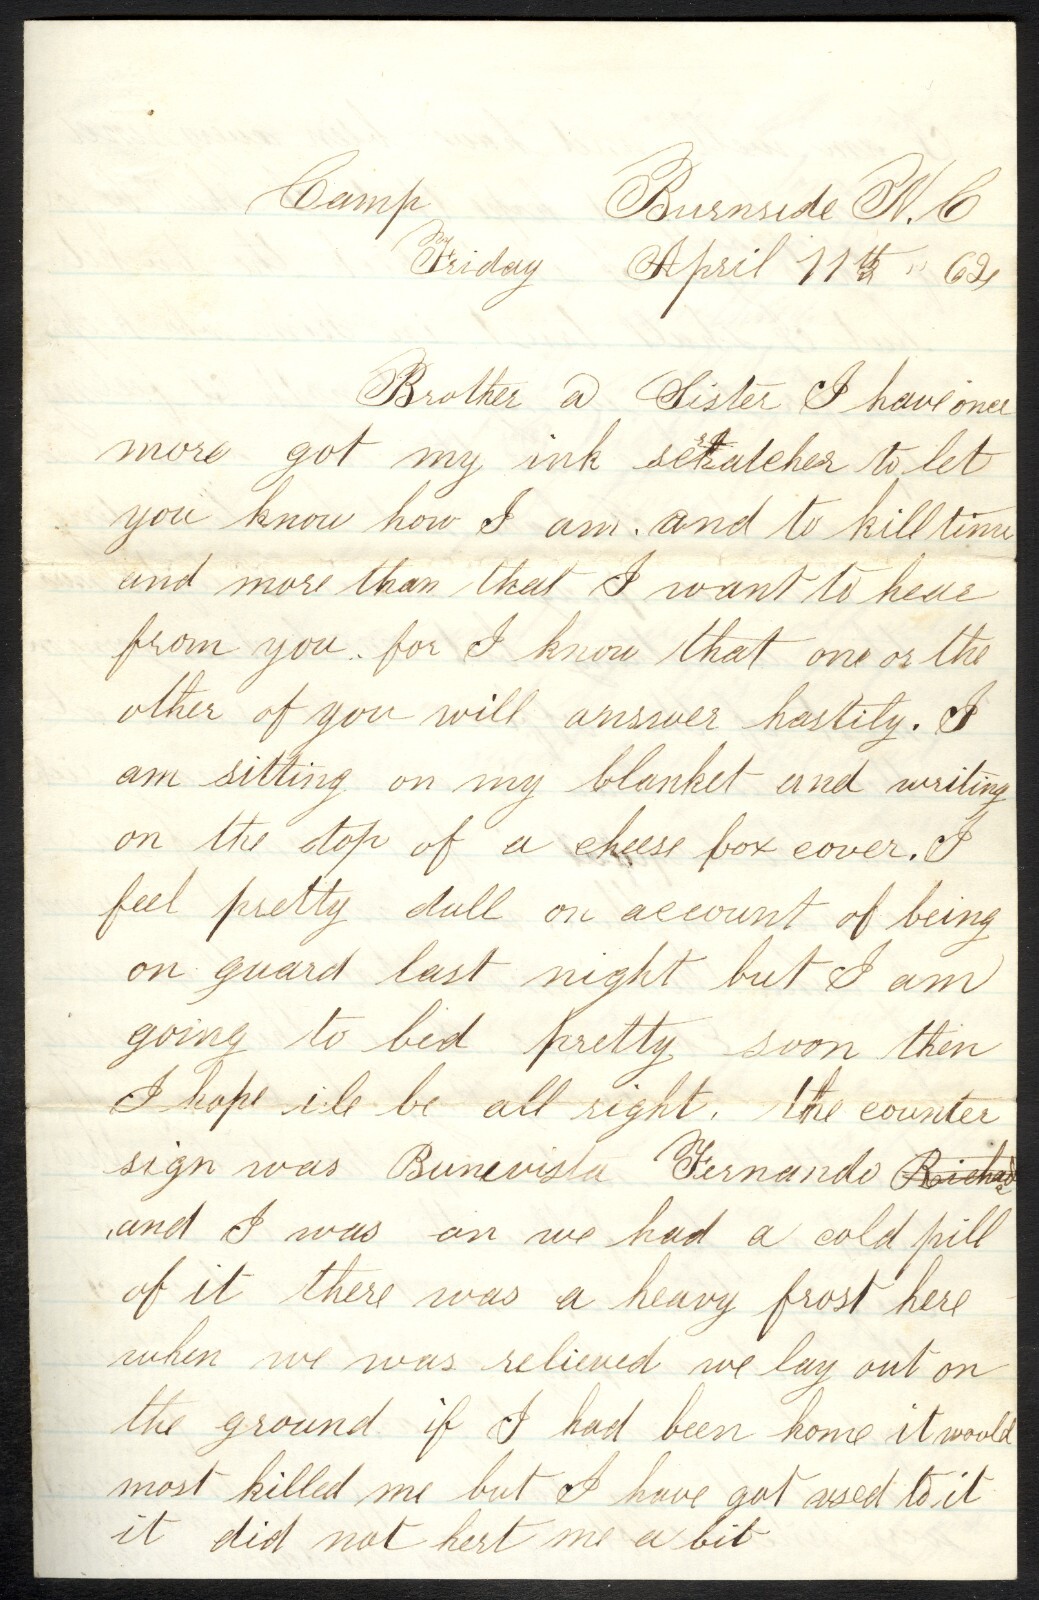 Camp Burnside N.C
Friday April 11th " 62
Brother a Sister I have once
more got my ink scratcher to let
you know how I am. and to kill time
and more than that I want to hear
from you. for I know that one or the
other of you will answer hastily. I
am sitting on my blanket and writing
on the top of a cheese box cover. I
feel pretty dull on account of being
on guard last night but I am
going to bed pretty soon then
I hope ile be all right. the counter
sign was Bunevista Fernando Richad
and I was on we had a cold pill
of it there was a heavy frost here
when we was relieved we lay out on
the ground if I had been home it would
most killed me but I have got used to it
it did not hert me a bit